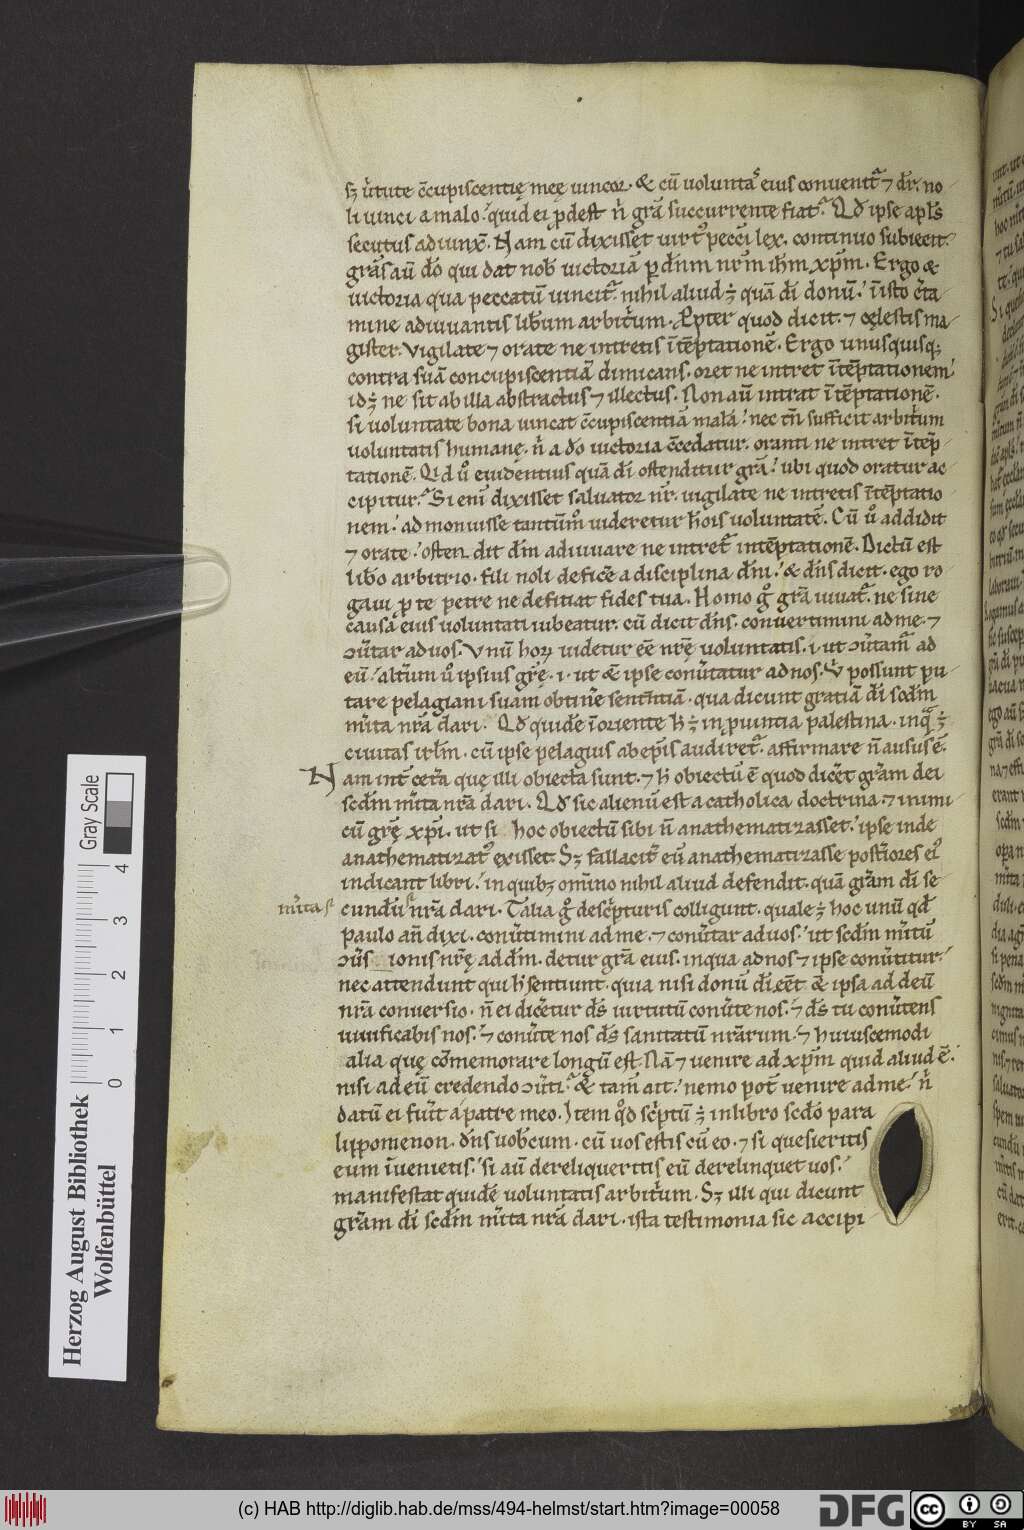 sꝫ ūtute c̄cupiscentię meę uincor. & cū uoluntas eius conuenit᷑ ⁊ dr̄. no
li uinci a malo. quid ei p̄dest n̄ grā succurrente fiat. Qd̄ ipse apl̄s
secutus adiunx̄. Nam cū dixisset uirt᷒ pecc̄i lex. continuo subiecit.
grās aū dō qui dat nob̄ uictoriā p dn̄m nr̄m ih̄m xp̄m. Ergo &
uictoria qua peccatū uincit᷑. nihil aliud ꝫ quā dī donū. īisto c̄ta
mine adiuuantis lib̄um arbit̄um. Ppter quod dicit. ⁊ cęlestis ma
gister. Vigilate ⁊ orate ne intretis ītēptationē. Ergo unusquisqꝫ
contra suā concupiscentiā dimicans. oret ne intret ītēptationem
idꝫ ne sit ab illa abstractus ⁊ illectus. Non aū intrat ītēptationē.
si uoluntate bona uincat c̄cupiscentiā malā. nec tn̄ sufficit arbit̄um
uoluntatis humanę. n̄ a dō uictoria c̄cedatur. oranti ne intret ītēp
tationē. Qd ū euidentius quā dī ostenditur grā. ubi quod oratur ac
cipitur. Si enī dixisset saluator nr̄. uigilate ne intretis ītēptatio
nem. admonuisse tantūm̊ uideretur hōis uoluntatē. Cū ū addidit
⁊ orate. osten dit dm̄ adiuuare ne intret᷑ intēptationē. Dictū est
lib̄o arbitrio. fili noli defic̄e a disciplina dn̄i. & dn̄s dicit. ego ro
gaui p te petre ne defitiat fides tua. Homo g̊ grā iuuat᷑. ne sine
causā eius uoluntati iubeatur. cū dicit dn̄s. conuertimini ad me. ⁊
ↄūtar ad uos. Vnū hoꝝ uidetur eē nr̄ę uoluntatis. i. ut ↄūtam᷑ ad
eū. alt̄um ū ipsius gr̄ę. i. ut & ipse conūtatur ad nos. V̄ possunt pu
tare pelagiani suam obtin̄e sentn̄tiā. qua dicunt gratiā dī scd̄m
m̄ita nrā dari. Qd̄ quidē īoriente h̄ ꝫ in puintia palestina. inq̄ ꝫ
ciuitas irl̄m. cū ipse pelagius ab ep̄is audiret᷑. affirmare n̄ ausus ē.
Nam int̄ cet̄a quę illi obiecta sunt. ⁊ h̄ obiectū ē quod dic̄et grām dei
scd̄m m̄ita nrā dari. Qd̄ sic alienū est a catholica doctrina. ⁊ inimi
cū gr̄ę xp̄i. ut si hoc obiectū sibi n̄ anathematizasset. ipse inde
anathematizat᷒ exisset. Sꝫ fallacit̄ eū anathematizasse post̄iores ei᷒
indicant libri. in quibꝫ om̄ino nihil aliud defendit. quā grām dī se
m̄ita s
cundū nrā dari. Talia g̊ desc̄pturis colligunt. quale ꝫ hoc unū qd̄
paulo an̄ dixi. conūtimini ad me. ⁊ conūtar ad uos. ut scd̄m m̄itū
ↄūs ionis nr̄ę ad dm̄. detur grā eius. inqua ad nos ⁊ ipse conūtitur.
nec attendunt qui h̄ sentiunt. quia nisi donū dī eēt & ipsa ad deū
nrā conuersio. n̄ ei dic̄etur ds̄ uirtutū conūte nos. ⁊ ds̄ tu conūtens
uiuificabis nos. ⁊ conūte nos ds̄ sanitatū nrārum. ⁊ huiuscemodi
alia quę cōmemorare longū est. Nā ⁊ uenire ad xp̄m quid aliud ē.
nisi ad eū credendo ↄūti. & tam̄ ait. nemo pot̄ uenire ad me. n̄
datū ei fūit a patre meo. Item qd̊ sc̄ptū ꝫ in libro scdō para
lippomenon. dn̄s uob̄cum. cū uos estis cū eo. ⁊ si quesieritis
eum īuenietis. si aū dereliqueritis eū derelinquet uos.
manifestat quidē uoluntatis arbit̄um. Sꝫ illi qui dicunt
grām dī scd̄m m̄ita nrā dari. ista testimonia sic accipi
Gray Scale
0 1 2 3 4
Herzog August Bibliothek
Wolfenbüttel
(c) HAB http://diglib.hab.de/mss/494-helmst/start.htm?image=00058
DFG
cc
BY SA